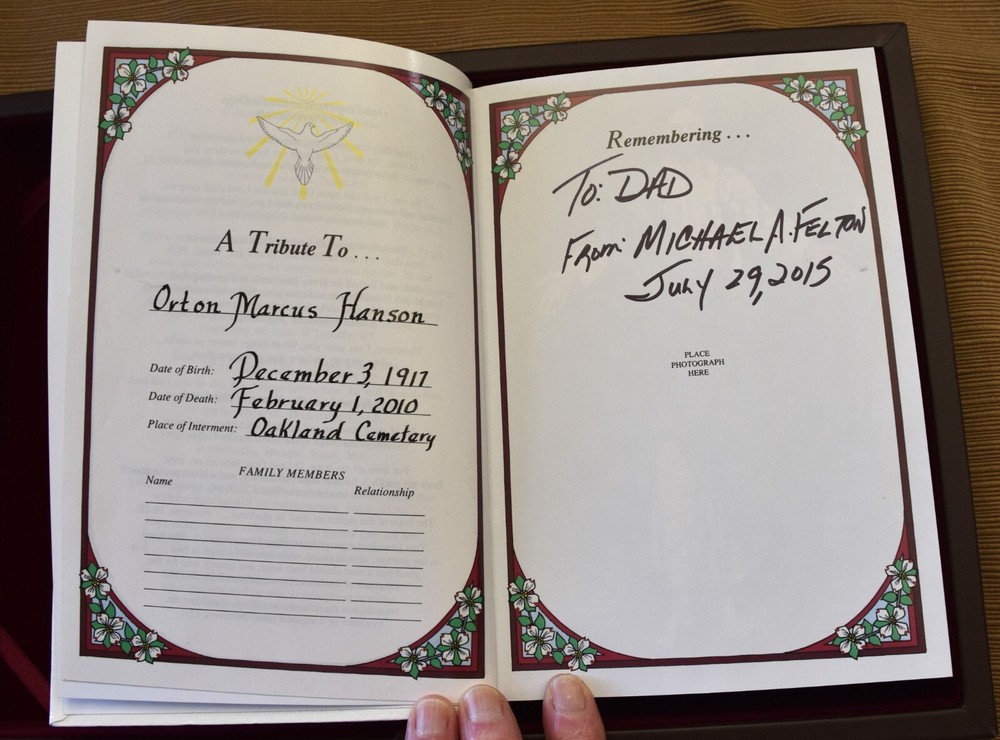 A Tribute To . . .
Orton Marcus Hanson
Date of Birth: December 3, 1917
Date of Death: February 1, 2010
Place of Interment: Oakland Cemetery
FAMILY MEMBERS
Name Relationship
Remembering . . .
To: DAD
From: MICHAEL A. FELTON
July 29, 2015
PLACE
PHOTOGRAPH
HERE